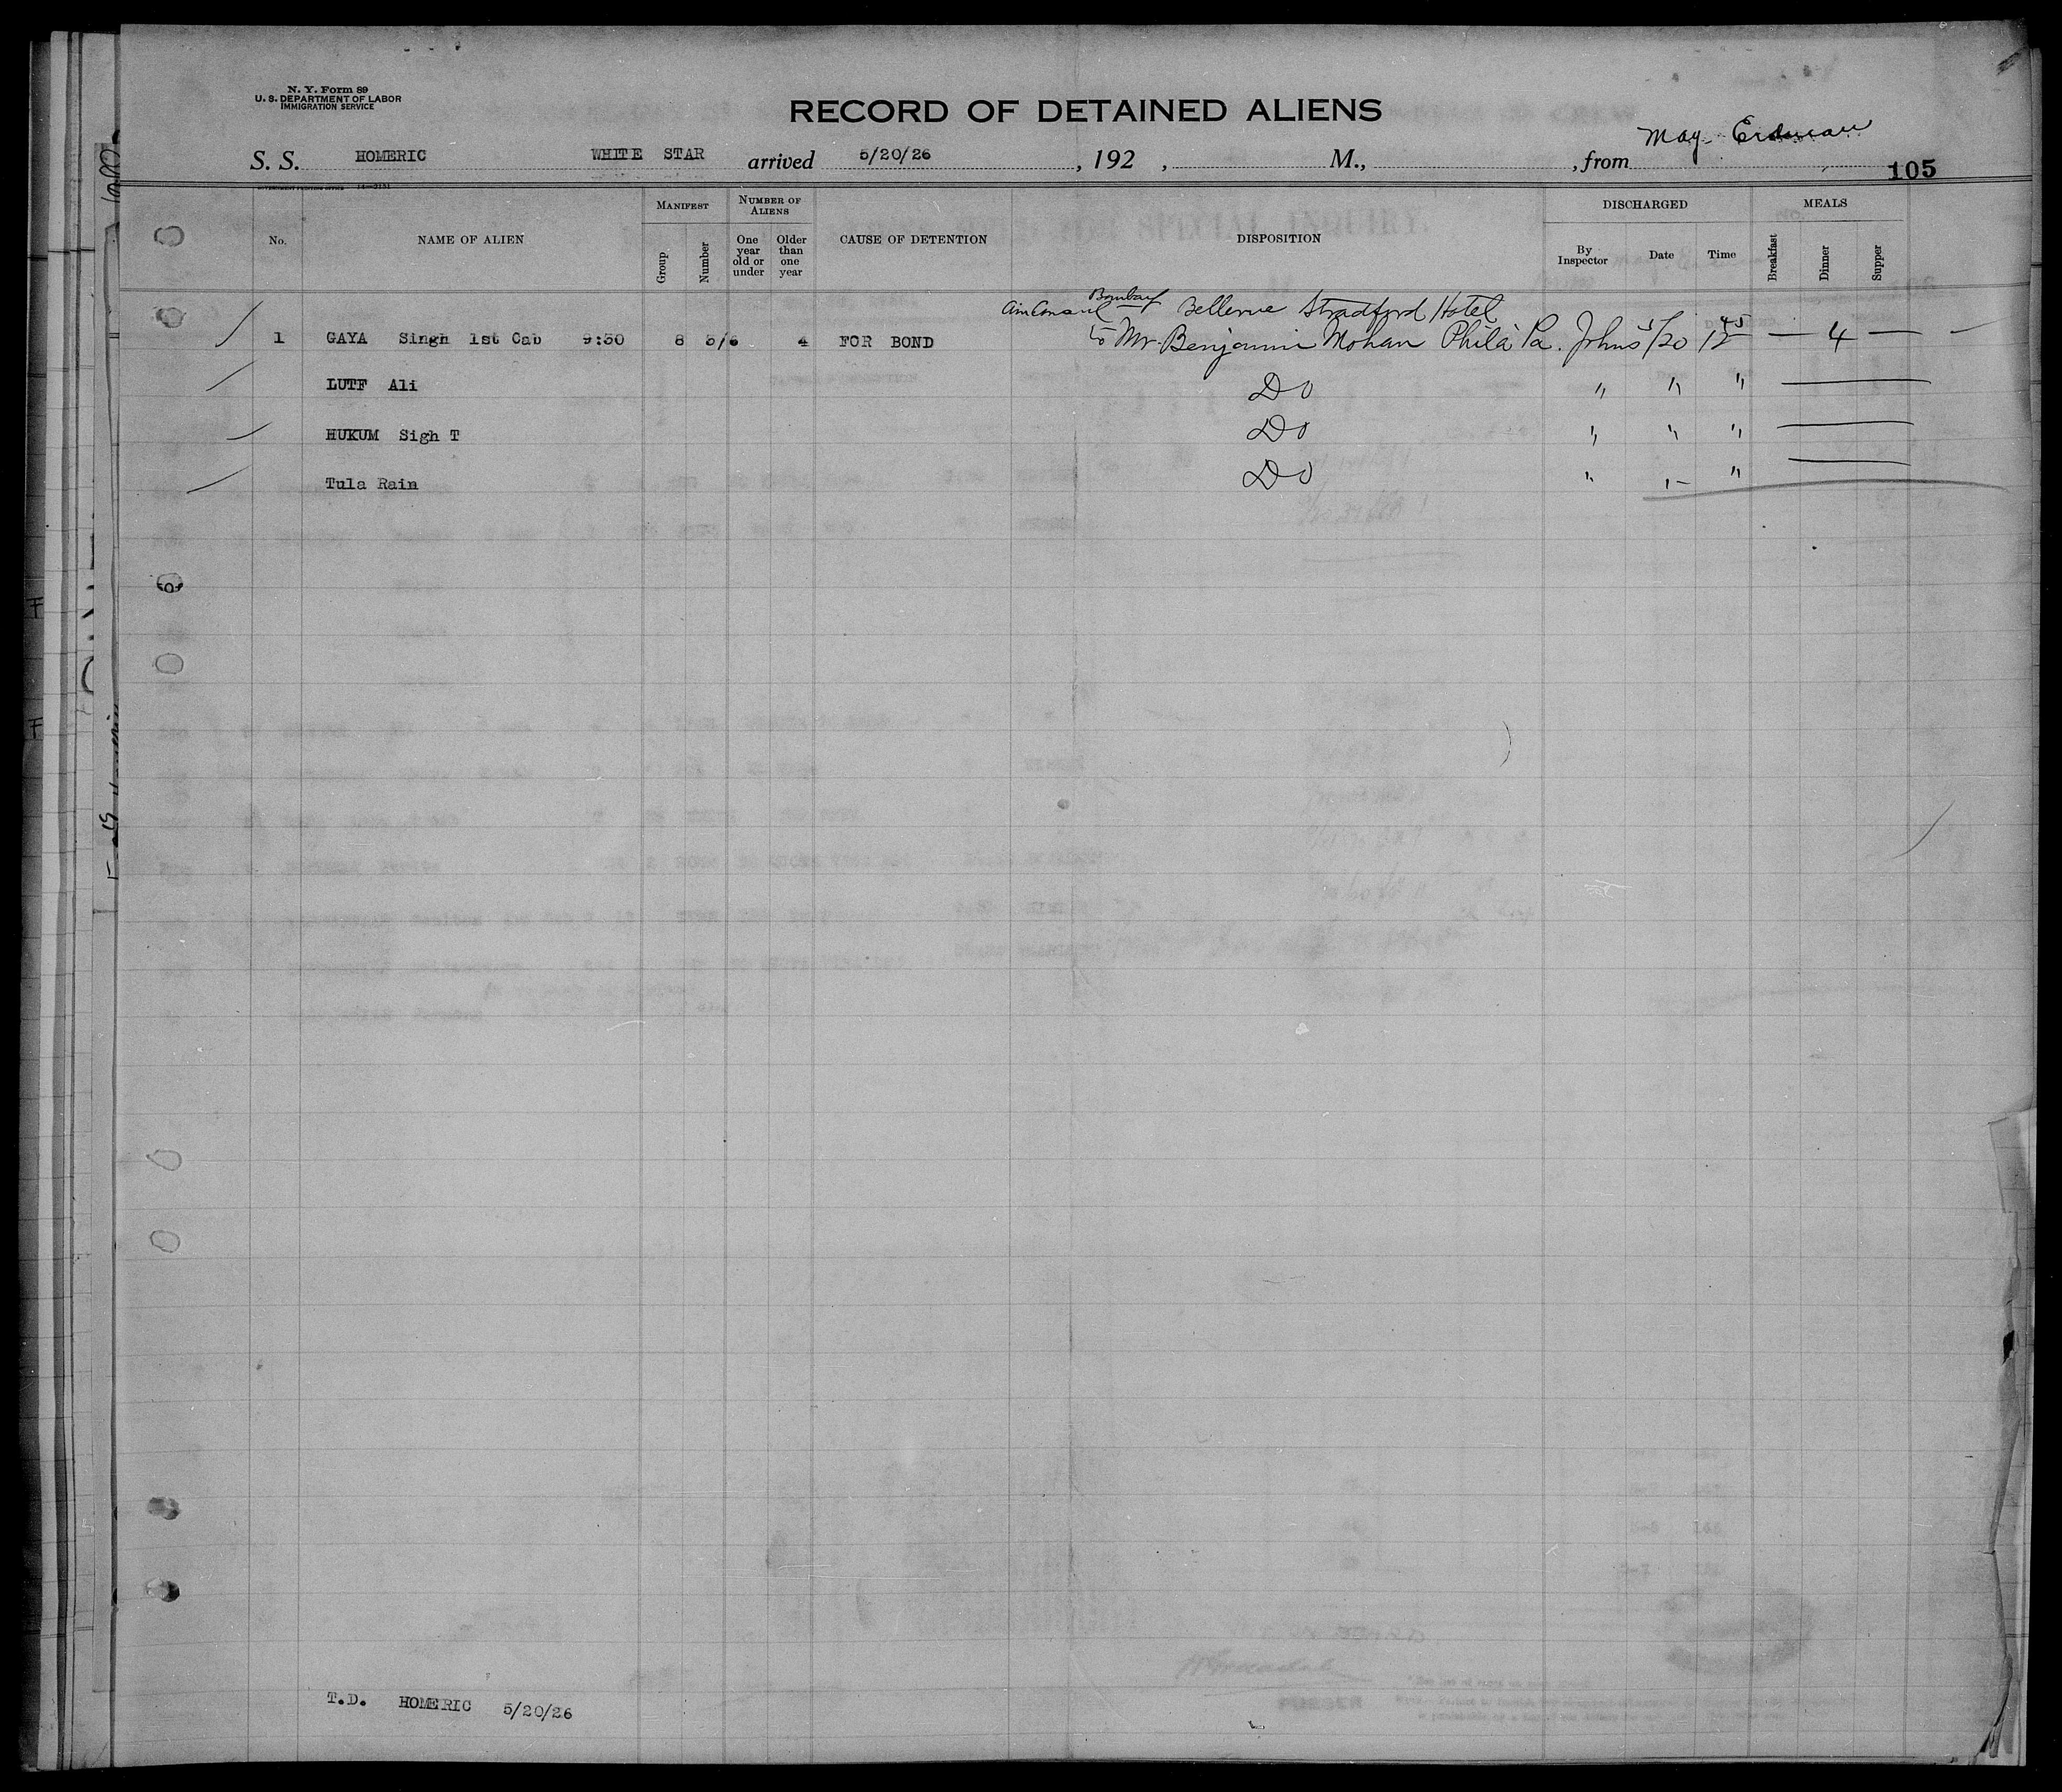 N. Y. Form 89
U. S. DEPARTMENT OF LABOR
IMMIGRATION SERVICE
RECORD OF DETAINED ALIENS
May Erdman
S. S. HOMERIC WHITE STAR arrived 5/20/26, 192 , M., , from 105
No. NAME OF ALIEN MANIFEST Group Number NUMBER OF ALIENS One year old or under Older than one year CAUSE OF DETENTION DISPOSITION DISCHARGED By Inspector Date Time MEALS Breakfast Dinner Supper
Am Consul Bombay Bellevue Stradford Hotel
1 GAYA Singh 1st Cab 9:30 8 5/6 4 FOR BOND to Mr. Benjamin Mohan Phila Pa. Johns 5/20 12 45 — 4 —
LUTF Ali Do " " "
HUKUM Sigh T Do " " "
Tula Rain Do " " "
T.D. HOMERIC 5/20/26